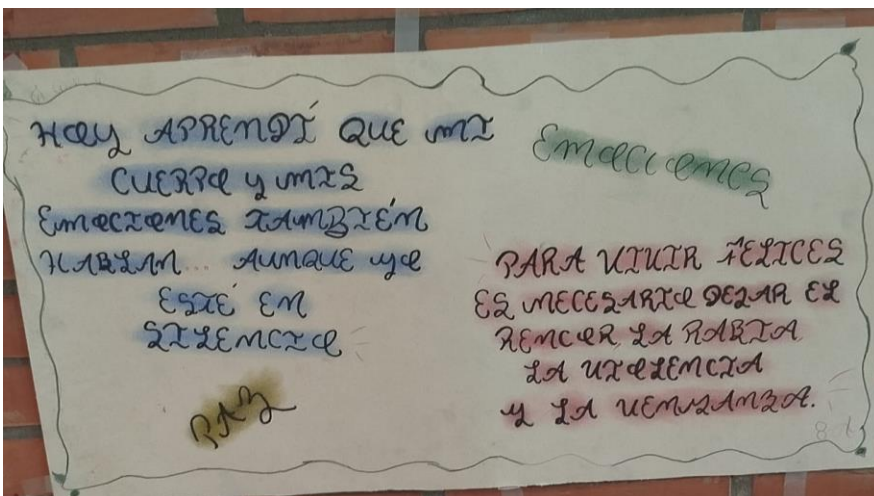 HOY APRENDÍ QUE MI
CUERPO Y MIS
EMOCIONES TAMBIÉN
HABLAN... AUNQUE YO
ESTÉ EN
SILENCIO
PAZ
Emociones
PARA VIVIR FELICES
ES NECESARIO DEJAR EL
RENCOR, LA RABIA
LA VIOLENCIA
Y LA VENGANZA.